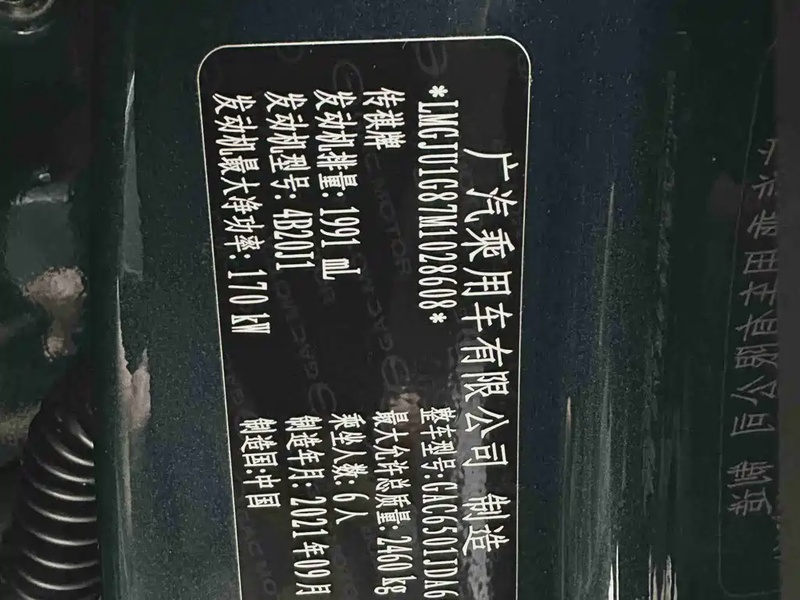 广汽乘用车有限公司 制造
*LMGJU1G87M1028608*
整车型号:GAC6501JDA6
传祺牌
最大允许总质量:2460 kg
发动机排量: 1991 mL
乘坐人数:6人
发动机型号: 4B20J1
制造年月: 2021年09月
发动机最大净功率: 170 kW
制造国:中国
GAC MOTOR